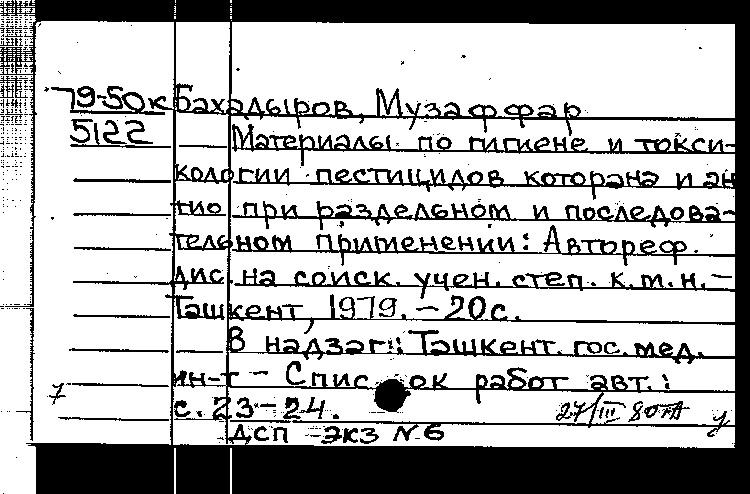 79-50к Бахадыров, Музаффар
5122 Материалы по гигиене и токси-
кологии пестицидов которана и ан
тио при раздельном и последова-
тельном применении: Автореф.
дис. на соиск. учен. степ. к.м.н. –
Ташкент, 1979. – 20 с.
В надзаг.: Ташкент. гос. мед.
ин-т – Список работ авт.:
7 с. 23-24. 27/III 80
ДСП экз N6